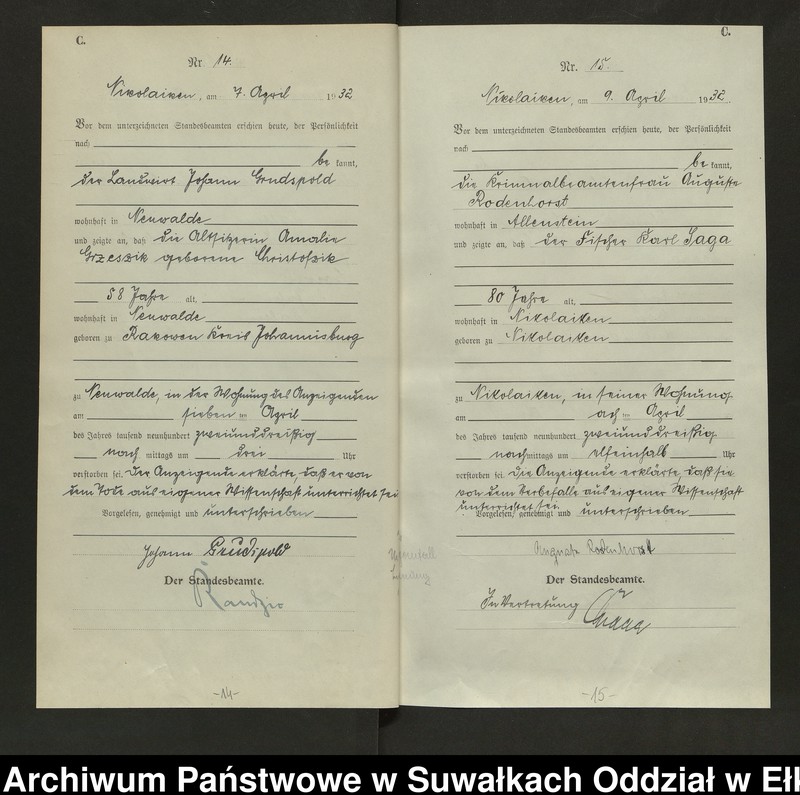 C.
Nr. 14.
Nikolaiken, am 7. April 1932
Vor dem unterzeichneten Standesbeamten erschien heute, der Persönlichkeit
nach
be kannt,
der Landwirt Johann
wohnhaft in Neuwalde
und zeigte an, daß die Altsitzerin Amalie
Grzeszik geborene Christofzik
58 Jahre alt,
wohnhaft in Neuwalde
geboren zu Rakowen Kreis Johannisburg
zu Neuwalde, in der Wohnung des Anzeigenden
am sieben ten April
des Jahres tausend neunhundert zweiunddreißig
nach mittags um drei Uhr
verstorben sei. Der Anzeigende erklärte, daß er von
dem Tode aus eigener Wissenschaft unterrichtet sei
Vorgelesen, genehmigt und unterschrieben
Johann
Der Standesbeamte.
-14-
C.
Nr. 15.
Nikolaiken, am 9. April 1932.
Vor dem unterzeichneten Standesbeamten erschien heute, der Persönlichkeit
nach
be kannt,
die Kriminalbeamtenfrau Auguste
Rodenhorst
wohnhaft in Allenstein
und zeigte an, daß der Fischer Karl Saga
80 Jahre alt,
wohnhaft in Nikolaiken
geboren zu Nikolaiken
zu Nikolaiken, in seiner Wohnung
am ach ten April
des Jahres tausend neunhundert zweiunddreißig
nach mittags um elfeinhalb Uhr
verstorben sei. Die Anzeigende erklärte, daß sie
von dem Sterbefalle aus eigener Wissenschaft
unterrichtet sei.
Vorgelesen, genehmigt und unterschrieben
Auguste Rodenhorst
Der Standesbeamte.
In Vertretung
-15-
Archiwum Państwowe w Suwałkach Oddział w Ełk